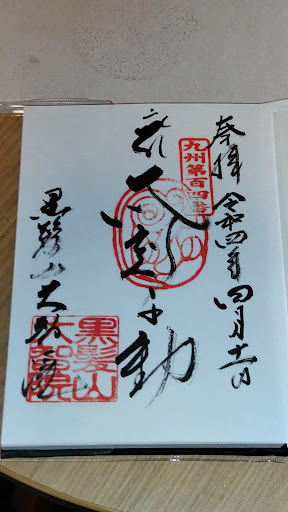 奉拝 令和四年四月十一日
九州第百四番
大聖不動
黒髪山大智院
黒髪山
大智院